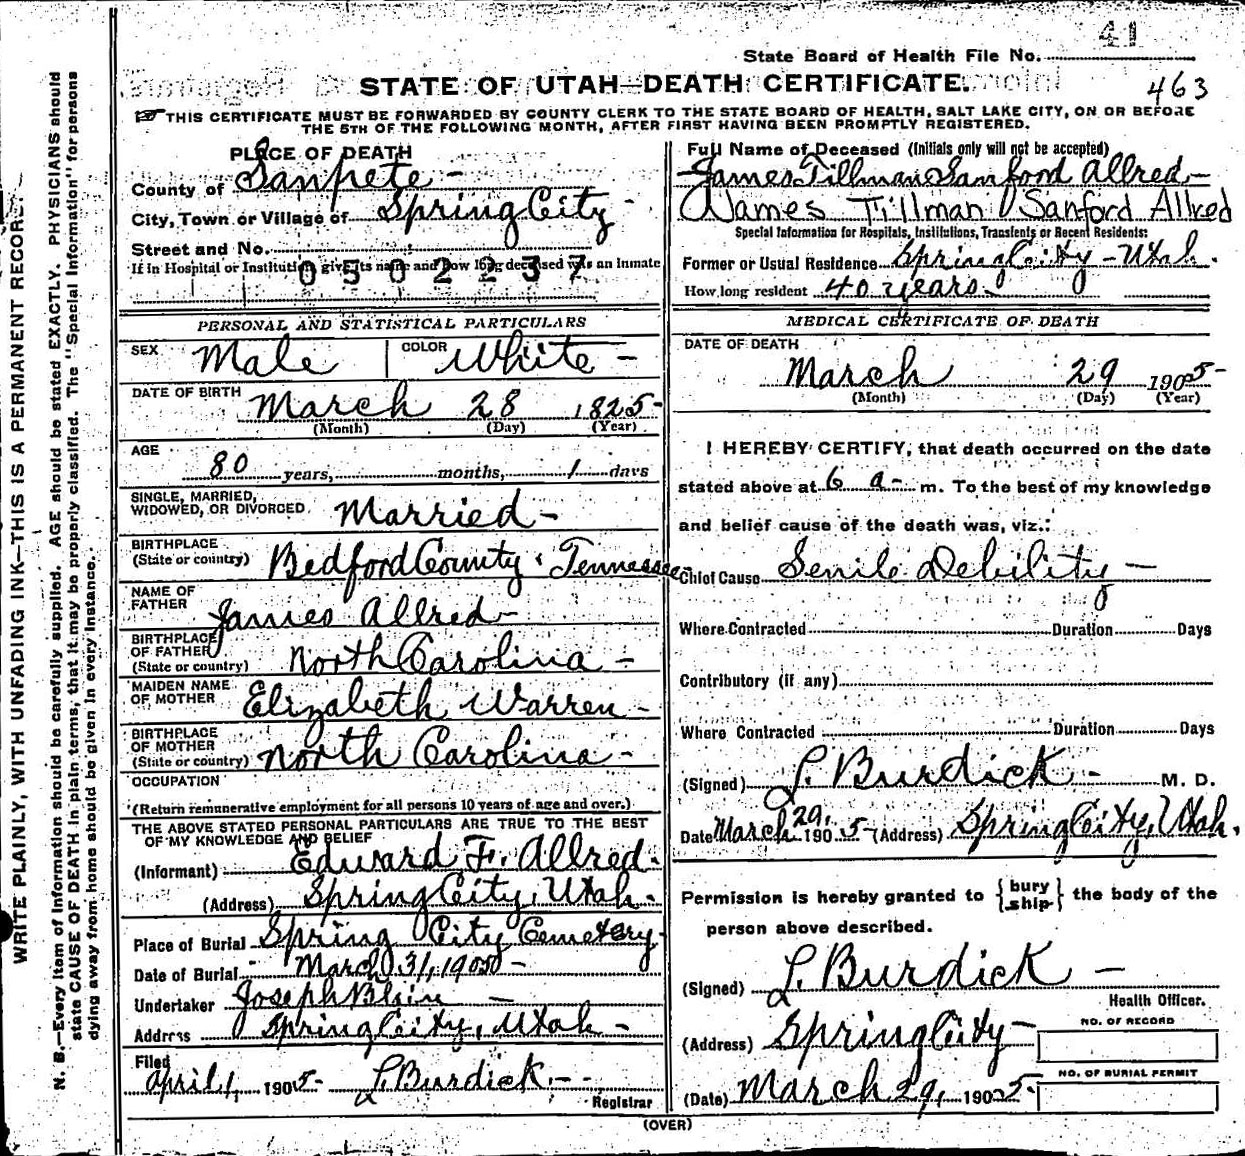 41
State Board of Health File No.
STATE OF UTAH—DEATH CERTIFICATE.
463
THIS CERTIFICATE MUST BE FORWARDED BY COUNTY CLERK TO THE STATE BOARD OF HEALTH, SALT LAKE CITY, ON OR BEFORE
THE 5TH OF THE FOLLOWING MONTH, AFTER FIRST HAVING BEEN PROMPTLY REGISTERED.
WRITE PLAINLY, WITH UNFADING INK—THIS IS A PERMANENT RECORD.
N. B.—Every item of information should be carefully supplied. AGE should be stated EXACTLY. PHYSICIANS should
state CAUSE OF DEATH in plain terms, that it may be properly classified. The "Special Information" for persons
dying away from home should be given in every instance.
PLACE OF DEATH
County of Sanpete
City, Town or Village of Spring City
Street and No.
If in Hospital or Institution give its name and how long deceased was an inmate
0502237
PERSONAL AND STATISTICAL PARTICULARS
SEX Male COLOR White
DATE OF BIRTH March 28 1825
(Month) (Day) (Year)
AGE
80 years, months, 1 days
SINGLE, MARRIED,
WIDOWED, OR DIVORCED Married
BIRTHPLACE
(State or country) Bedford County, Tennessee
NAME OF
FATHER James Allred
BIRTHPLACE
OF FATHER
(State or country) North Carolina
MAIDEN NAME
OF MOTHER Elizabeth Warren
BIRTHPLACE
OF MOTHER
(State or country) North Carolina
OCCUPATION
(Return remunerative employment for all persons 10 years of age and over.)
THE ABOVE STATED PERSONAL PARTICULARS ARE TRUE TO THE BEST
OF MY KNOWLEDGE AND BELIEF
(Informant) Edward F. Allred.
(Address) Spring City, Utah.
Place of Burial Spring City Cemetery
Date of Burial March 31, 1905
Undertaker Joseph Blain
Address Spring City, Utah
Filed
April 1, 1905 L. Burdick.
Registrar
Full Name of Deceased (Initials only will not be accepted)
James Tillman Sanford Allred
James Tillman Sanford Allred
Special Information for Hospitals, Institutions, Transients or Recent Residents:
Former or Usual Residence Spring City - Utah.
How long resident 40 years.
MEDICAL CERTIFICATE OF DEATH
DATE OF DEATH
March 29 1905
(Month) (Day) (Year)
I HEREBY CERTIFY, that death occurred on the date
stated above at 6 a- m. To the best of my knowledge
and belief cause of the death was, viz.:
Chief Cause Senile Debility
Where Contracted Duration Days
Contributory (if any)
Where Contracted Duration Days
(Signed) L. Burdick M. D.
Date March 29, 1905 (Address) Spring City, Utah.
Permission is hereby granted to {bury ship} the body of the
person above described.
(Signed) L. Burdick
Health Officer.
(Address) Spring City
NO. OF RECORD
NO. OF BURIAL PERMIT
(Date) March 29, 1905
(OVER)